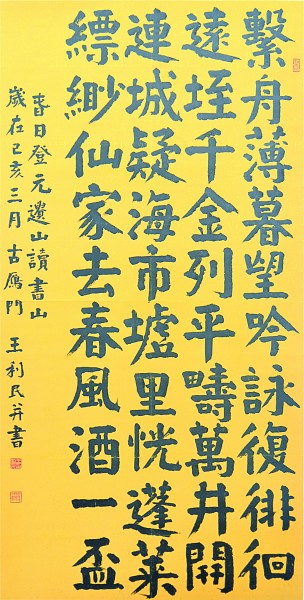 繫舟薄暮望吟詠復徘徊
遠垤千金列平疇萬井開
連城疑海市墟里恍蓬萊
縹緲仙家去春風酒一盃
春日登元遺山讀書山
歲在己亥三月古鴈門王利民并書